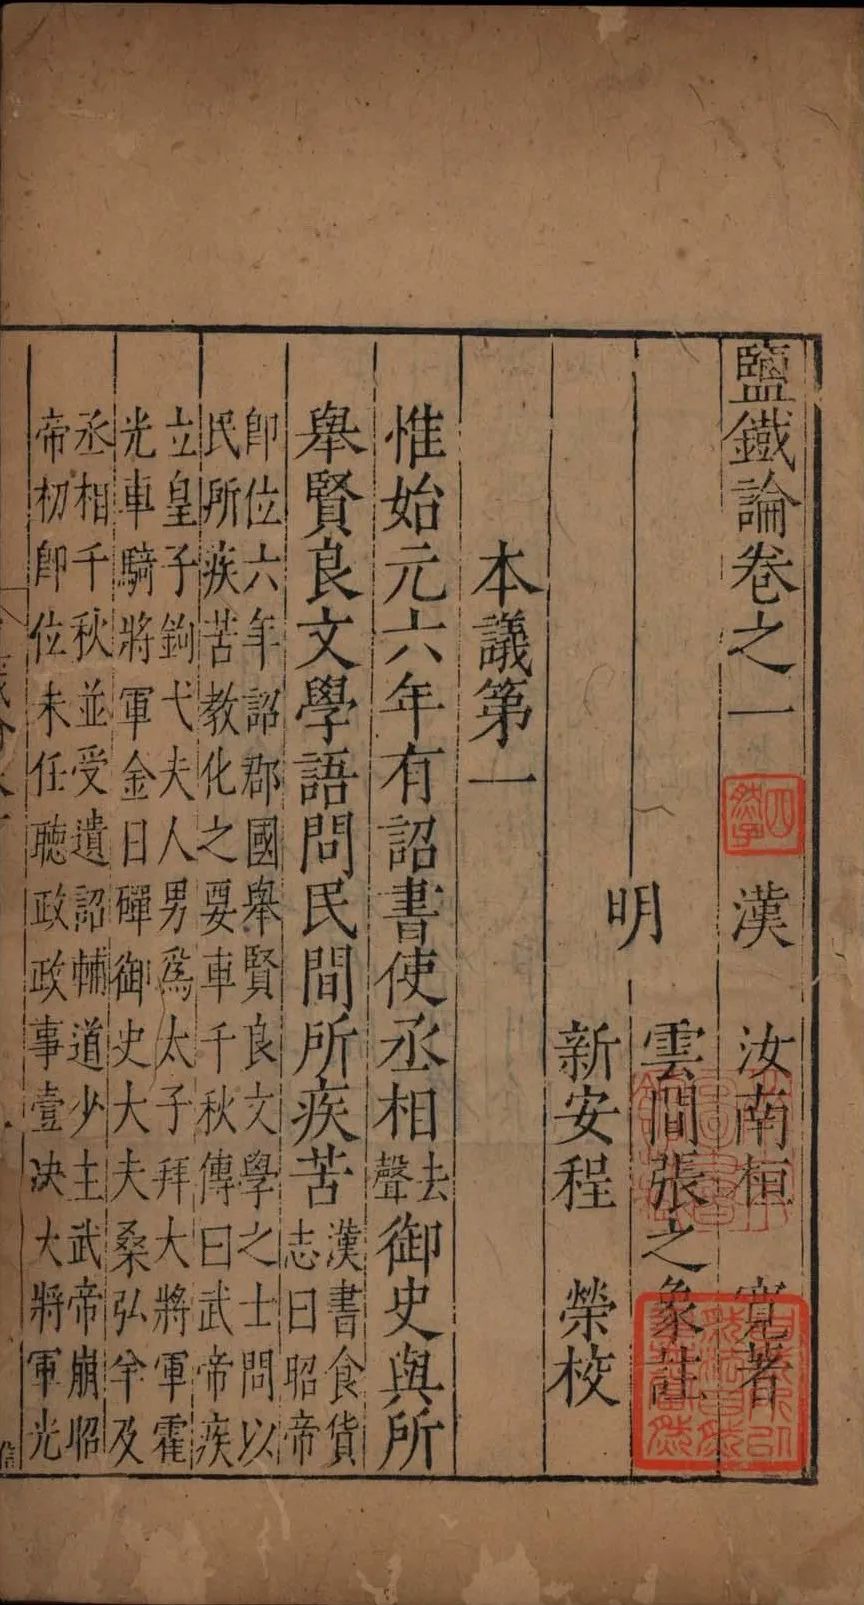 鹽鐵論卷之一
漢 汝南桓 寬著
明 雲間張之象註
新安程 榮校
本議第一
惟始元六年有詔書使丞相去聲御史與所
舉賢良文學語問民間所疾苦漢書食貨志曰昭帝
即位六年詔郡國舉賢良文學之士問以
民所疾苦教化之要車千秋傳曰武帝疾
立皇子鉤弋夫人男爲太子拜大將軍霍
光車騎將軍金日磾御史大夫桑弘羊及
丞相千秋並受遺詔輔道少主武帝崩昭
帝初即位未任聽政政事壹決大將軍光